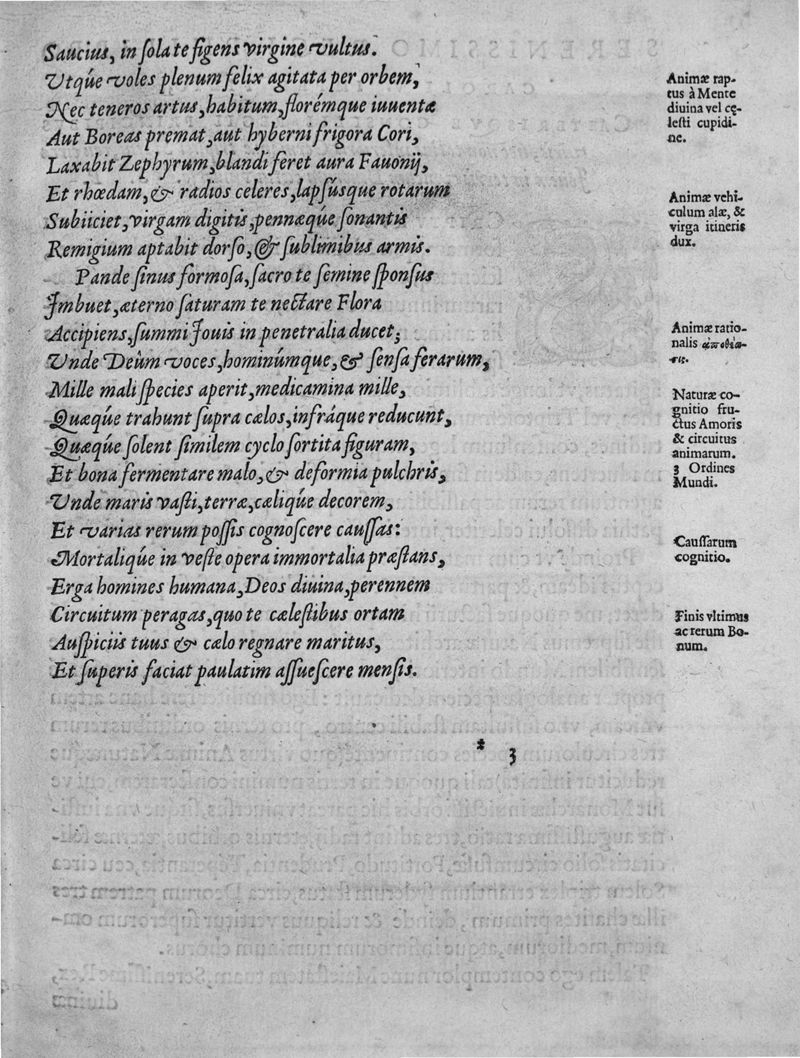 Saucius, in ſola te figens virgine vultus.
Utq́ue voles plenum felix agitata per orbem,
Nec teneros artus, habitum, florémque iuuentæ
Aut Boreas premat, aut hyberni frigora Cori,
Laxabit Zephyrum, blandi feret aura Fauonij,
Et rhœdam, & radios celeres, lapſúsque rotarum
Subiiciet, virgam digitis, pennæq́ue ſonantis
Remigium aptabit dorſo, & ſublimibus armis.
Pande ſinus formoſa, ſacro te ſemine ſponſus
Imbuet, æterno ſaturam te nectare Flora
Accipiens, ſummi Iouis in penetralia ducet;
Unde Deûm voces, hominúmque, & ſenſa ferarum,
Mille mali ſpecies aperit, medicamina mille,
Quæq́ue trahunt ſupra cælos, infráque reducunt,
Quæq́ue ſolent ſimilem cyclo ſortita figuram,
Et bona fermentare malo, & deformia pulchris,
Unde maris vaſti, terræ, cæliq́ue decorem,
Et varias rerum poſſis cognoſcere cauſſas:
Mortaliq́ue in veſte opera immortalia præſtans,
Erga homines humana, Deos diuina, perennem
Circuitum peragas, quo te cæleſtibus ortam
Auſpiciis tuus & cælo regnare maritus,
Et ſuperis faciat paulatim aſſueſcere menſis.
Animæ rap-
tus à Mente
diuina vel cę-
leſti cupidi-
ne.
Animæ vehi-
culum alæ, &
virga itineris
dux.
Animæ ratio-
nalis
Naturæ co-
gnitio fru-
ctus Amoris
& circuitus
animarum.
3 Ordines
Mundi.
Cauſſarum
cognitio.
Finis vltimus
ac rerum Bo-
num.
* 3